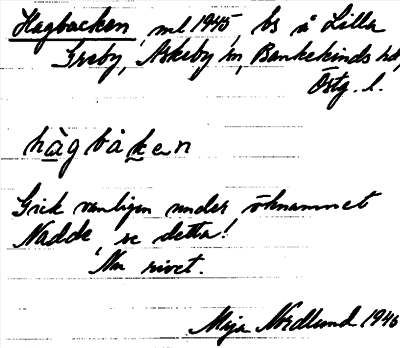 Hagbacken, ml 1945, bs å Lilla
Greby, Askeby sn, Bankekinds hd,
Östg. l.
hàgbàken
Gick vanligen under öknamnet
Nadde, se detta!
Nu rivet.
Maja Nordlund 1945